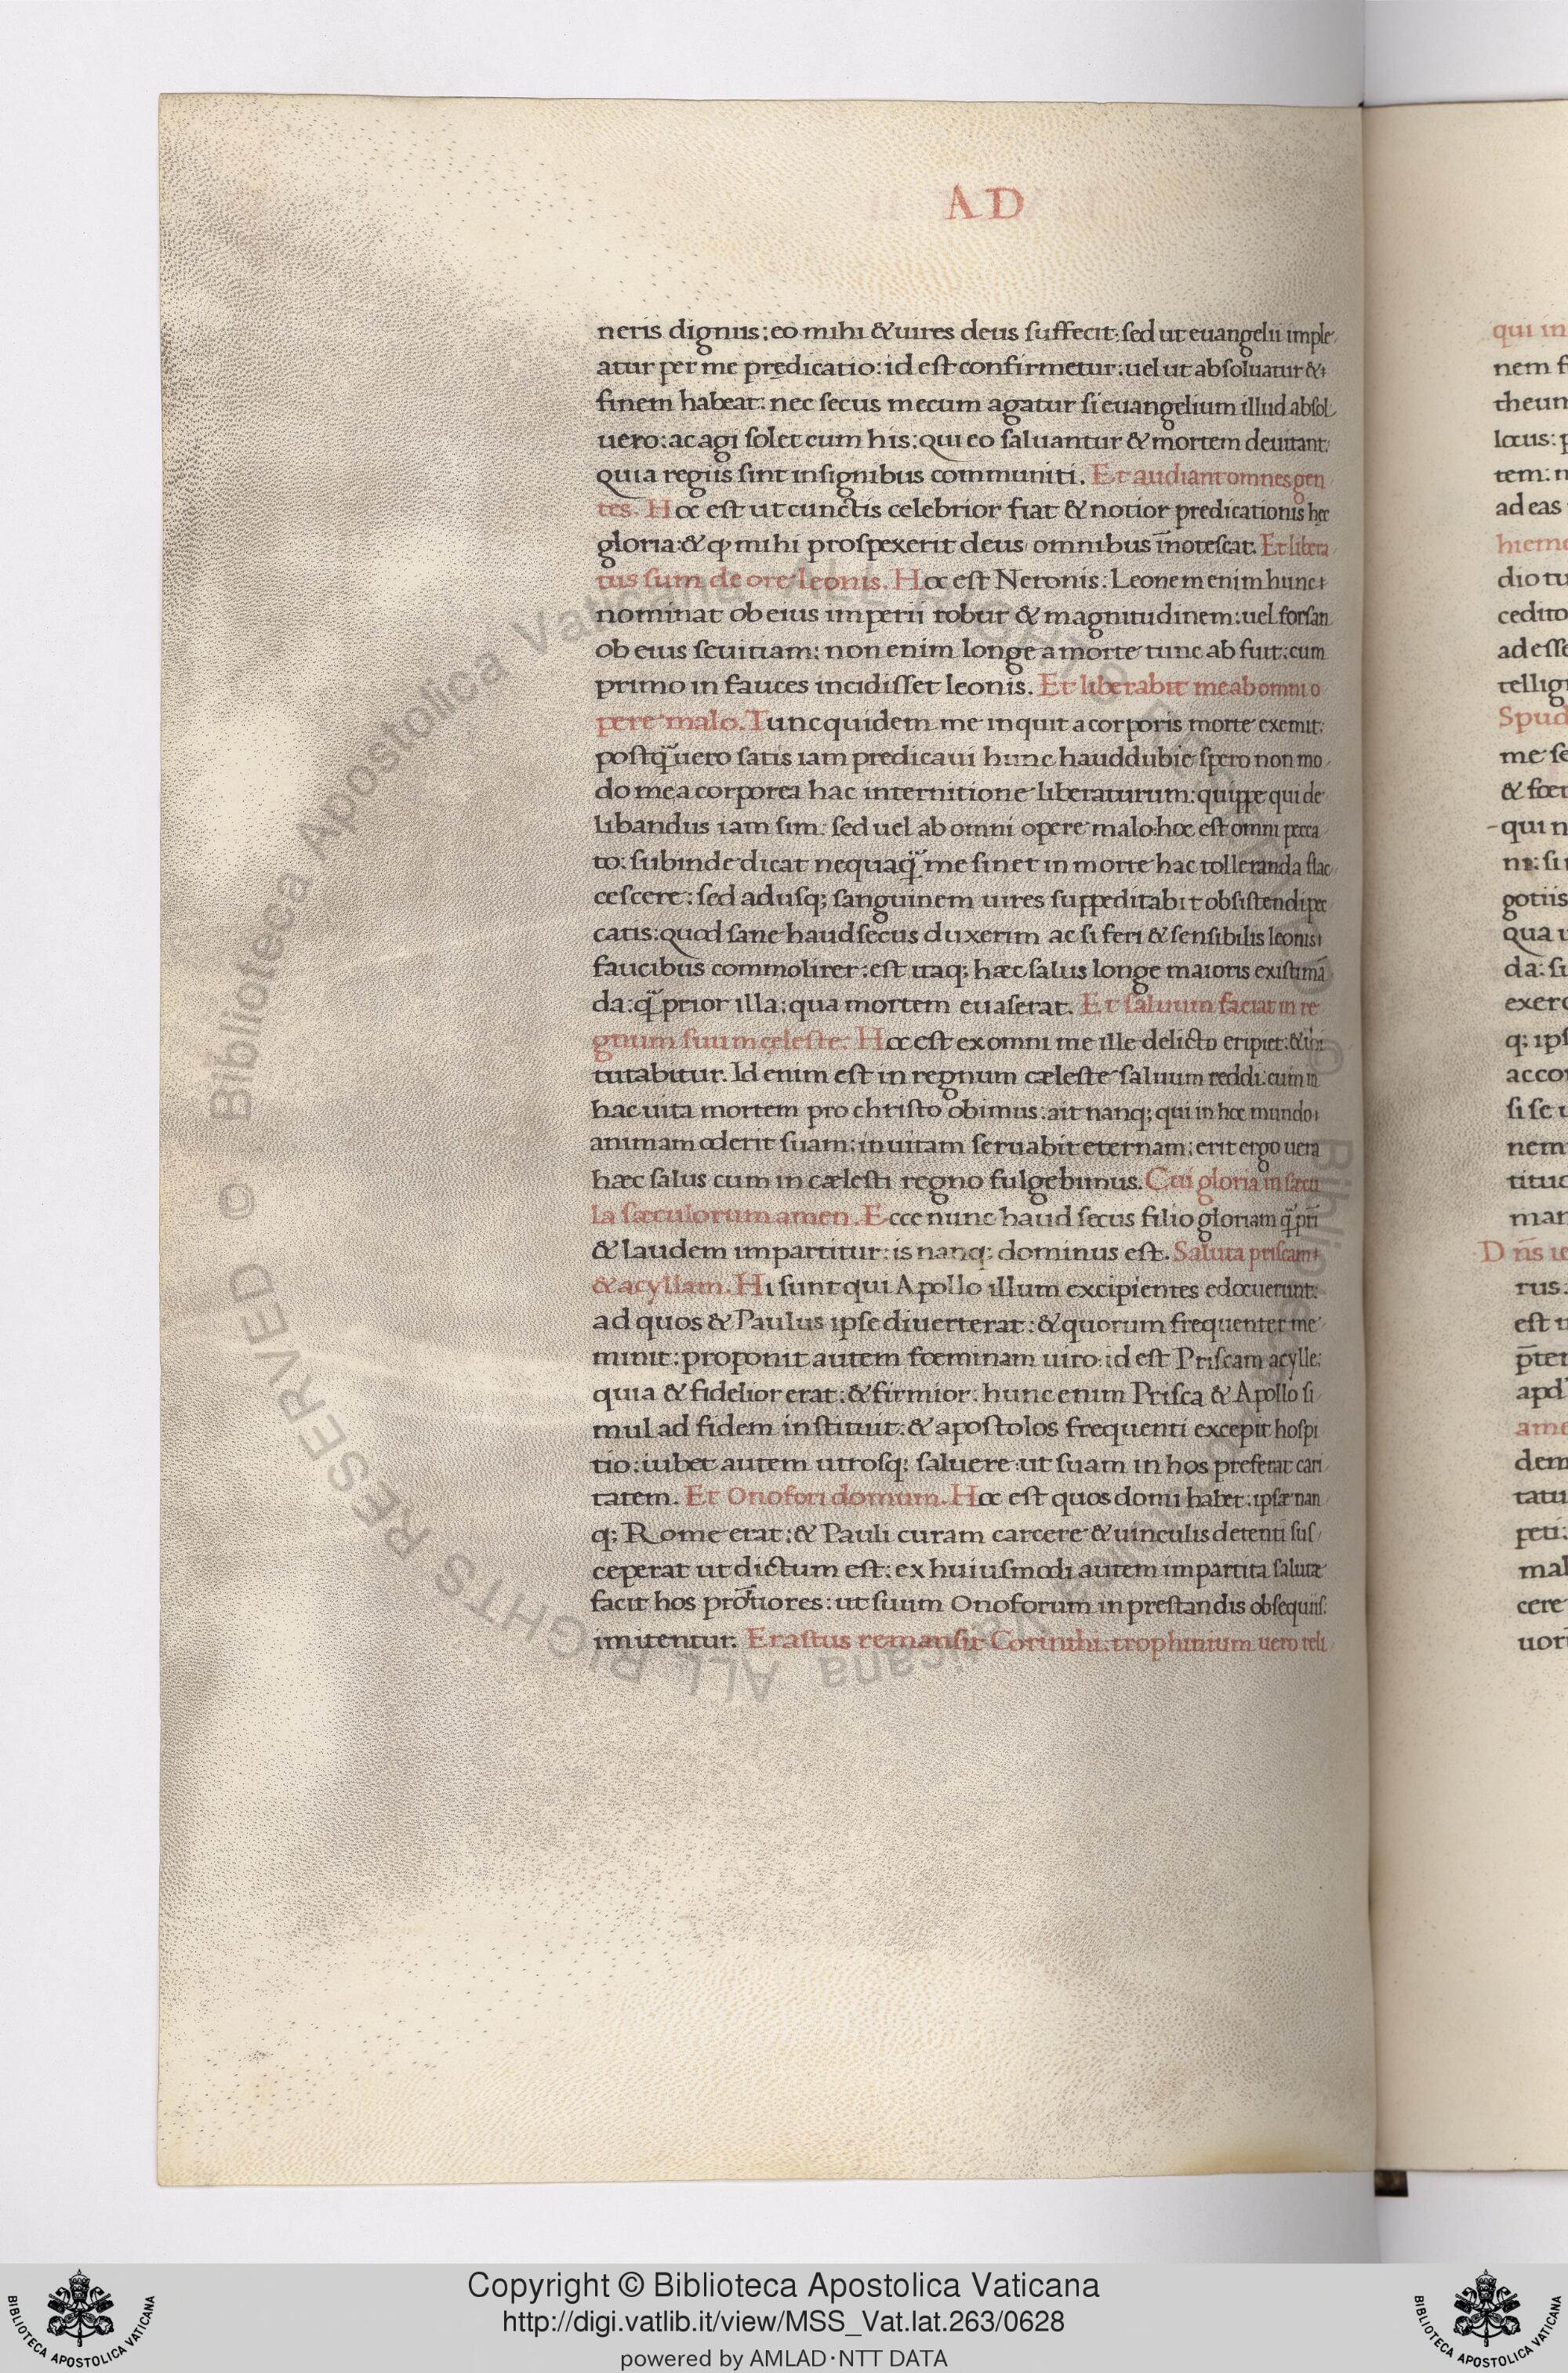 AD
neris dignus: eo mihi & uires deus suffecit: sed ut euangelii imple
atur per me predicatio: id est confirmetur: uel ut absoluatur &
finem habeat: nec secus mecum agatur si euangelium illud absol
uero: ac agi solet cum his: qui eo saluantur & mortem deuitant:
quia regiis sint insignibus communiti. Et audiant omnes gen
tes. Hoc est ut cunctis celebrior fiat & notior predicationis hec
gloria: & ꝙ mihi prospexerit deus omnibus īnotescat. Et libera
tus sum de ore leonis. Hoc est Neronis: Leonem enim hunc
nominat ob eius imperii robur & magnitudinem: uel forsan
ob eius seuitiam: non enim longe a morte tunc ab fuit: cum
primo in fauces incidisset leonis. Et liberabit me ab omni o
pere malo. Tunc quidem me inquit a corporis morte exemit:
postq̃ uero satis iam predicaui hunc hauddubie spero non mo
do me a corporea hac internitione liberaturum: quippe qui de
libandus iam sim: sed uel ab omni opere malo: hoc est omni pecca
to: subinde dicat nequaq̃ me sinet in morte hac tolleranda flac
cescere: sed adusq; sanguinem uires suppeditabit obsistendi pec
catis: quod sane haud secus duxerim ac si feri & sensibilis leonis
faucibus commolirer: est itaq; hæc salus longe maioris existimā
da: q̃ prior illa: qua mortem euaserat. Et saluum faciat in re
gnum suum cęleste. Hoc est ex omni me ille delicto eripiet: & ibi
tutabitur. Id enim est in regnum cæleste saluum reddi: cum in
hac uita mortem pro christo obimus: ait nanq; qui in hoc mundo
animam oderit suam: in uitam seruabit eternam: erit ergo uera
hæc salus cum in cælesti regno fulgebimus. Cui gloria in sæcu
la sæculorum amen. Ecce nunc haud secus filio gloriam q̃ pr̃i
& laudem impartitur: is nanq; dominus est. Saluta priscam
& acyllam. Hi sunt qui Apollo illum excipientes edocuerunt:
ad quos & Paulus ipse diuerterat: & quorum frequenter me
minit: proponit autem foeminam uiro: id est Priscam acylle:
quia & fidelior erat: & firmior: hunc enim Prisca & Apollo si
mul ad fidem instituit: & apostolos frequenti excepit hospi
tio: iubet autem utrosq; saluere: ut suam in hos preferat cari
tatem. Et Onofori domum. Hoc est quos domi habet: ipsæ nan
q; Rome erat: & Pauli curam carcere & uinculis detenti sus
ceperat ut dictum est: ex huiusmodi autem impartita salute
facit hos prōtiores: ut suum Onoforum in prestandis obsequiis:
imitentur. Erastus remansit Corinthi: trophimum uero reli
qui in
nem
theum
locus:
tem:
ad eas
dio tu
cedito
ad esse
tellig
Spud
me se
& foet
qui n
gotiis
qua u
da: si
exerc
accor
si se u
nem
tituc
mar
D n̄s
rus.
est
ame
dem
tatu
peti:
mal
cere
uor
Copyright © Biblioteca Apostolica Vaticana
http://digi.vatlib.it/view/MSS_Vat.lat.263/0628
powered by AMLAD·NTT DATA
BIBLIOTECA APOSTOLICA VATICANA
BIBLIOTECA APOSTOLICA VATICANA